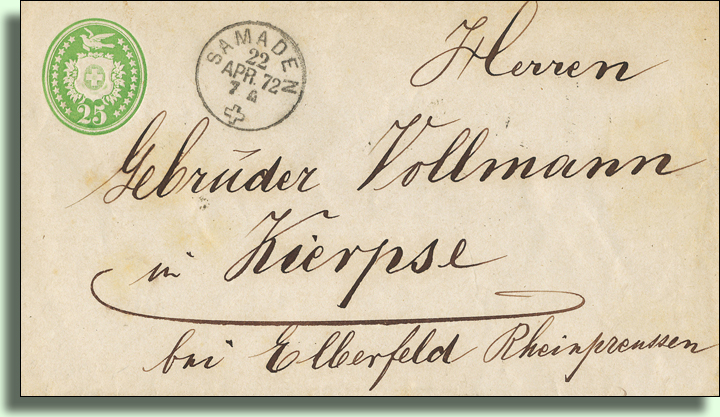 25
SAMADEN
22
APR. 72
7
Herren
Gebrüder Vollmann
in Kierpse
bei Elberfeld Rheinpreussen